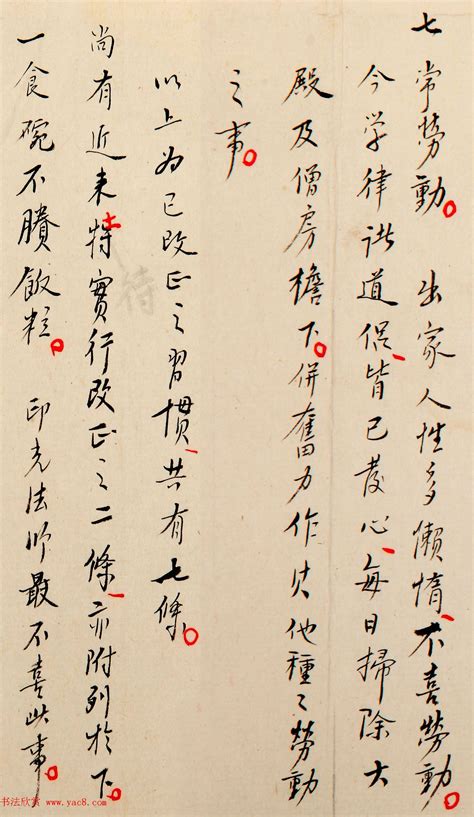 七常勞動。　出家人性多懶惰、不喜勞動。
今学律諸道侶、皆已發心、每日掃除大
殿及僧房檐下。併奮力作其他種々勞動
之事。
以上为已改正之習慣、共有七條。
尚有近来特實行改正之二條、亦附列於下。
一食碗不賸飯粒。　印光法师最不喜此事。
书法欣赏 www.yac8.com